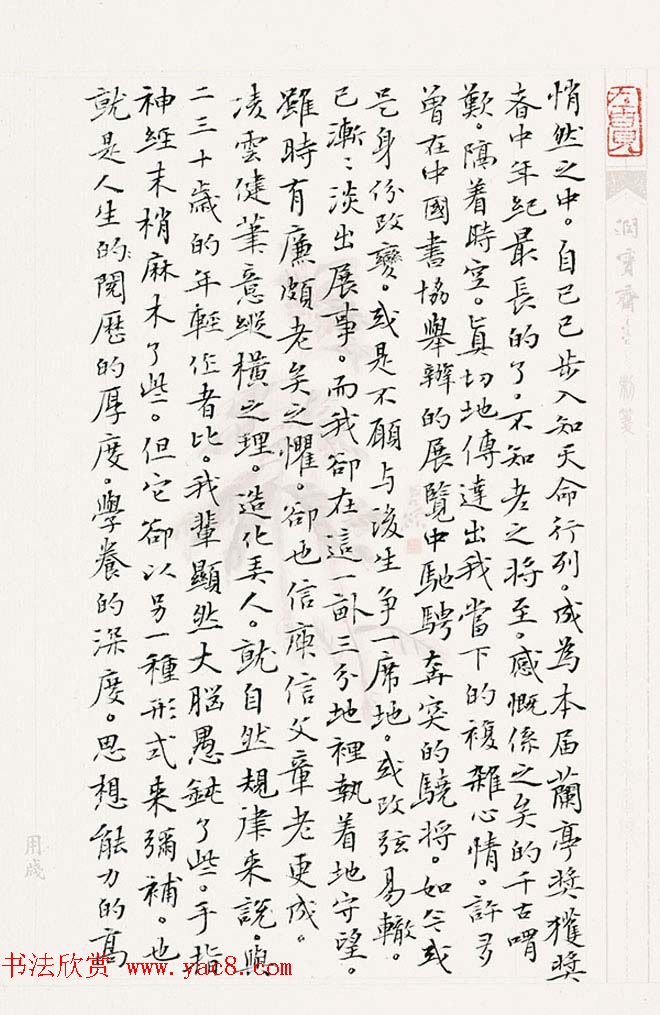 悄然之中。自己已步入知天命行列。成為本届蘭亭奬獲奬
者中年紀最長的了。不知老之将至。感慨係之矣的千古喟
歎。隔着時空。真切地傳達出我當下的複雜心情。許多
曾在中國書協舉辦的展覽中馳騁奔突的驍将。如今或
是身份改變。或是不願与後生争一席地。或改弦易轍。
已漸、淡出展事。而我卻在這一畝三分地裡執着地守望。
雖時有廉頗老矣之懼。卻也信庾信文章老更成。
凌雲健筆意縱橫之理。造化弄人。就自然規律来說。與
二三十歲的年輕作者比。我輩顯然大脑愚鈍了些。手指
神經末梢麻木了些。但它卻以另一種形式来彌補。也
就是人生的閱歷的厚度。學養的深度。思想能力的高
用牋
书法欣赏 www.yac8.com